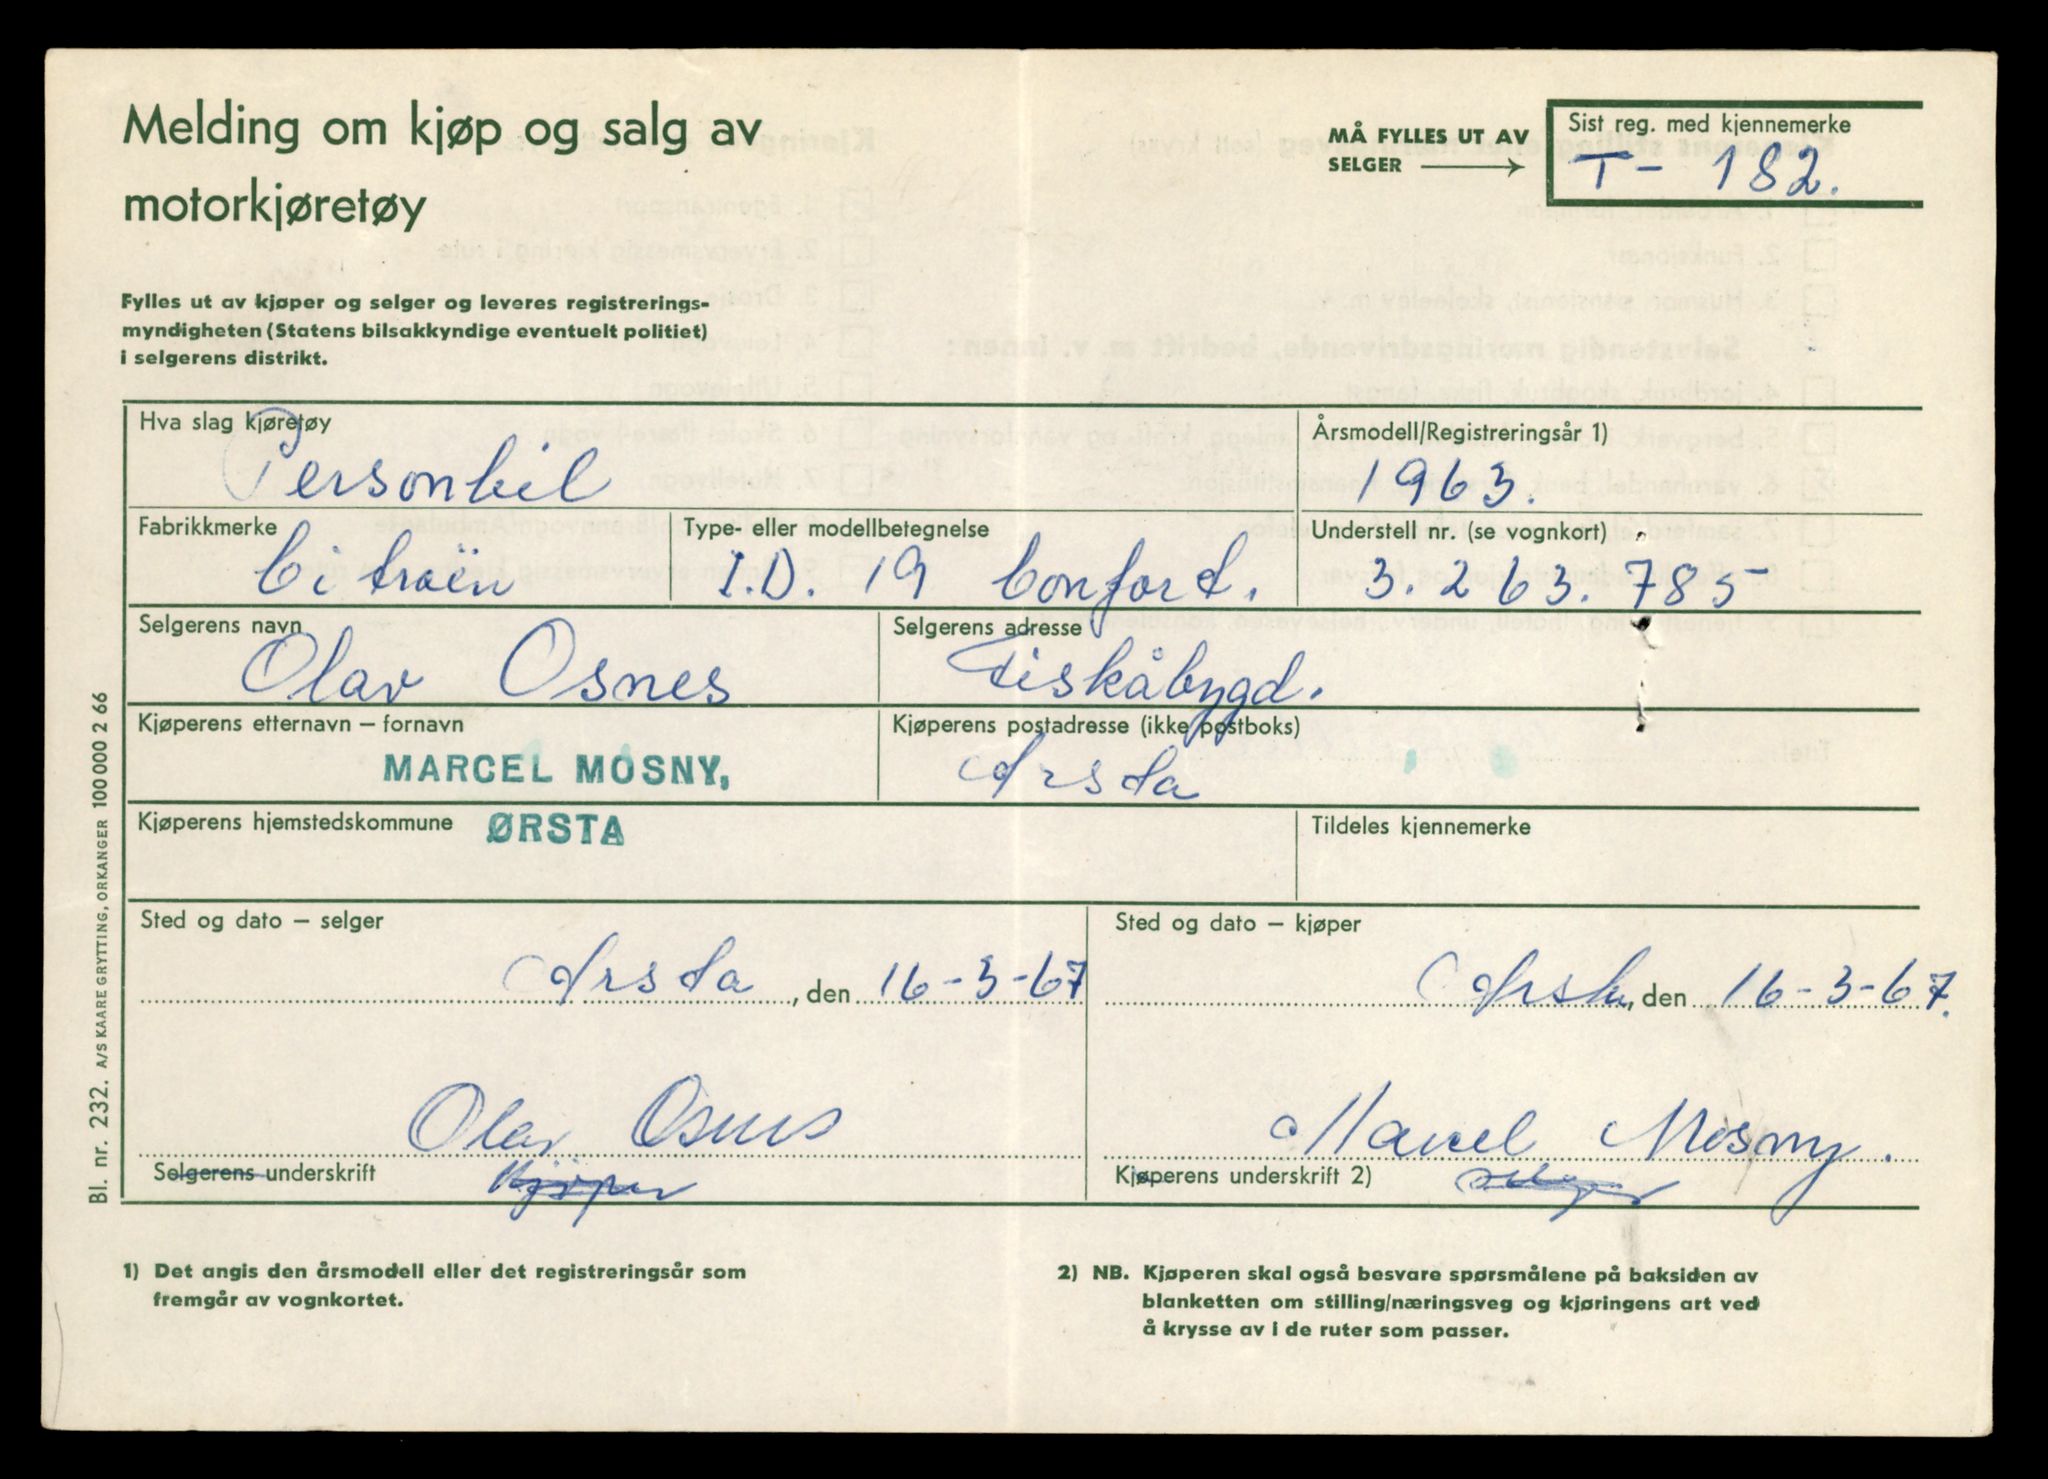 Melding om kjøp og salg av
motorkjøretøy
MÅ FYLLES UT AV
SELGER
Sist reg. med kjennemerke
T- 182.
Fylles ut av kjøper og selger og leveres registrerings-
myndigheten (Statens bilsakkyndige eventuelt politiet)
i selgerens distrikt.
Hva slag kjøretøy
Personbil
Årsmodell/Registreringsår 1)
1963.
Fabrikkmerke
Citroën
Type- eller modellbetegnelse
I.D. 19 Confort.
Understell nr. (se vognkort)
3.263.785
Selgerens navn
Olav Osnes
Selgerens adresse
Fiskåbygd.
Kjøperens etternavn – fornavn
MARCEL MOSNY,
Kjøperens postadresse (ikke postboks)
Ørsta
Kjøperens hjemstedskommune
ØRSTA
Tildeles kjennemerke
Sted og dato – selger
Ørsta, den 16-3-67
Sted og dato – kjøper
Ørsta, den 16-3-67.
Olav Osnes
Selgerens underskrift
Kjøper
Marcel Mosny.
Kjøperens underskrift 2)
selger
1) Det angis den årsmodell eller det registreringsår som
fremgår av vognkortet.
2) NB. Kjøperen skal også besvare spørsmålene på baksiden av
blanketten om stilling/næringsveg og kjøringens art ved
å krysse av i de ruter som passer.
Bl. nr. 232. A/S KAARE GRYTTING, ORKANGER 100 000 2 66